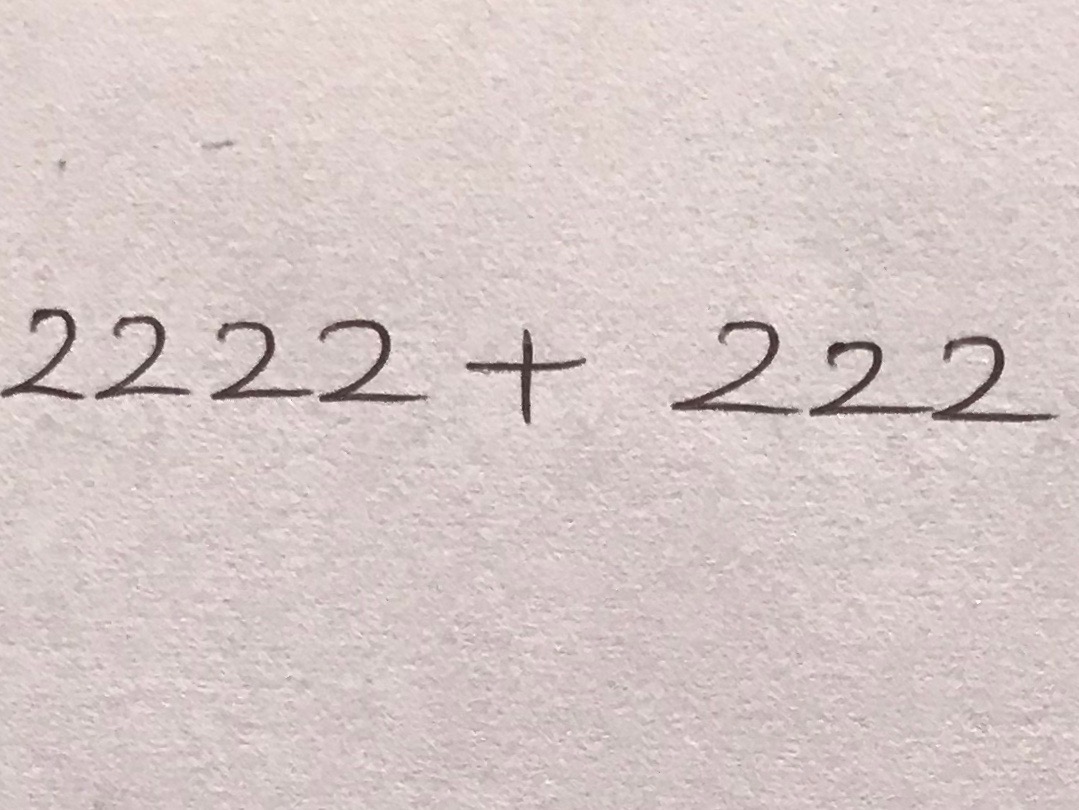 2222 + 222